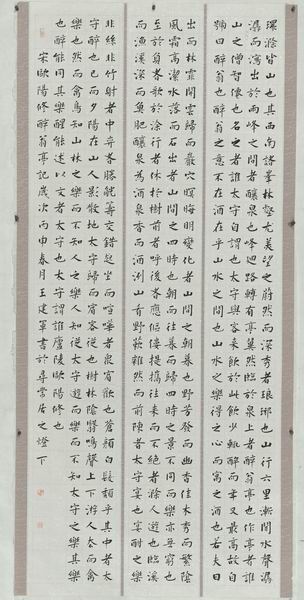 環滁皆山也其西南諸峯林壑尤美望之蔚然而深秀者琅琊也山行六里漸聞水聲潺
潺而瀉出於兩峰之間者釀泉也峰迴路轉有亭翼然臨於泉上者醉翁亭也作亭者誰
山之僧智僊也名之者誰太守自謂也太守與客來飲於此飲少輒醉而年又最高故自
號曰醉翁也醉翁之意不在酒在乎山水之間也山水之樂得之心而寓之酒也若夫日
出而林霏開雲歸而巖穴暝晦明變化者山間之朝暮也野芳發而幽香佳木秀而繁陰
風霜高潔水落而石出者山間之四時也朝而往暮而歸四時之景不同而樂亦無窮也
至於負者歌於塗行者休於樹前者呼後者應傴僂提攜往來而不絕者滁人遊也臨溪
而漁溪深而魚肥釀泉為酒泉香而酒洌山肴野蔌雜然而前陳者太守宴也宴酣之樂
非絲非竹射者中弈者勝觥籌交錯起坐而喧嘩者衆賓歡也蒼顏白髮頹乎其中者太
守醉也已而夕陽在山人影散亂太守歸而賓客從也樹林陰翳鳴聲上下游人去而禽
樂也然而禽鳥知山林之樂而不知人之樂人知從太守遊而樂而不知太守之樂其樂
也醉能同其樂醒能述以文者太守也太守謂誰廬陵歐陽修也
宋歐陽修醉翁亭記歲次丙申春月王建軍書於尋常居之燈下